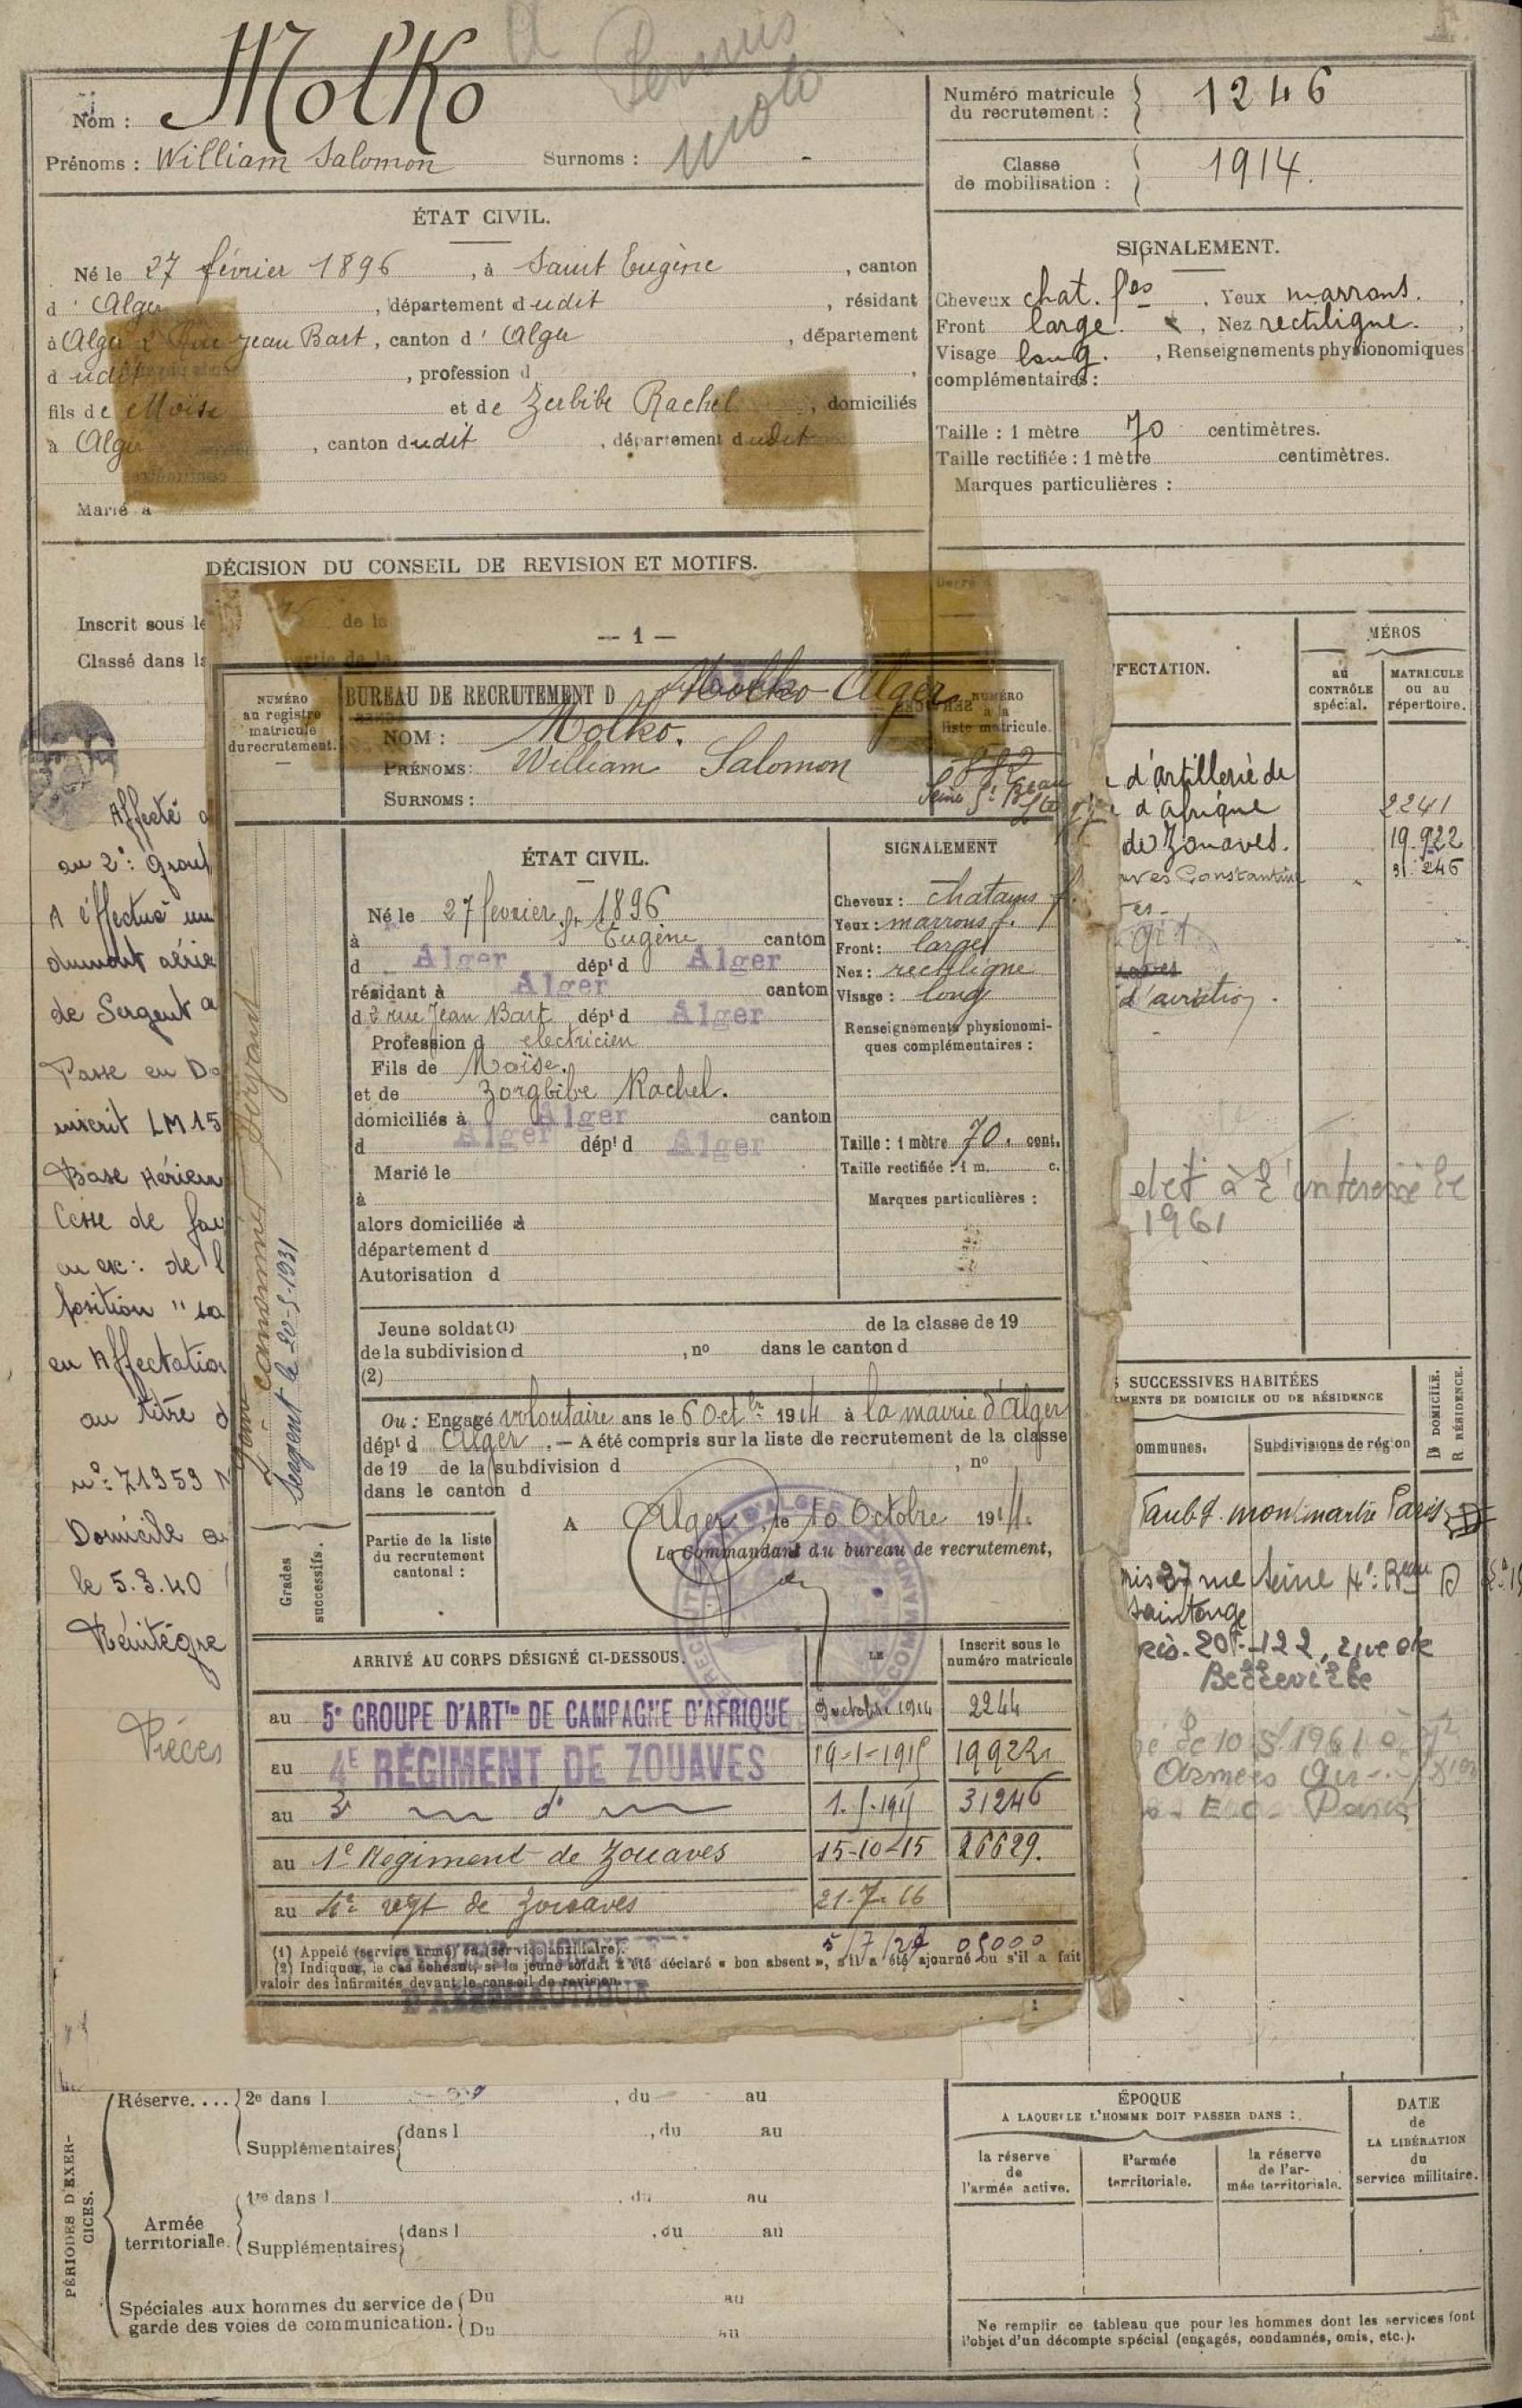 Molko
Permis
moto
Nom :
Prénoms : William Salomon Surnoms : -
Numéro matricule
du recrutement : 1246
Classe
de mobilisation : 1914.
ÉTAT CIVIL.
Né le 27 février 1896, à Saint Eugène, canton
d' Alger, département dudit, résidant
à Alger 2 Rue Jean Bart, canton d' Alger, département
dudit, profession d
fils de Moïse et de Zerbibe Rachel, domiciliés
à Alger, canton dudit, département dudit
Marié à
SIGNALEMENT.
Cheveux chat. fcs. Yeux marrons.
Front large. , Nez rectiligne.
Visage long. , Renseignements physionomiques
complémentaires :
Taille : 1 mètre 70 centimètres.
Taille rectifiée : 1 mètre centimètres.
Marques particulières :
DÉCISION DU CONSEIL DE REVISION ET MOTIFS.
Inscrit sous le de la
Classé dans la partie de la
— 1 —
NUMÉRO
au registre
matricule
du recrutement.
BUREAU DE RECRUTEMENT D Molko Alger
NUMÉRO
à la
liste matricule.
NOM : Molko.
PRÉNOMS : William Salomon
SURNOMS :
882
Seine
ÉTAT CIVIL.
Né le 27 fevrier 1896
à St Eugène canton
d Alger dépt d Alger
résidant à Alger canton
d 2 rue Jean Bart dépt d Alger
Profession d electricien
Fils de Moïse.
et de Zorgbibe Rachel.
domiciliés à Alger canton
d Alger dépt d Alger
Marié le
à
alors domiciliée à
département d
Autorisation d
SIGNALEMENT
Cheveux : chatains f.
Yeux : marrons f.
Front : large
Nez : rectiligne
Visage : long
Renseignements physionomi-
ques complémentaires :
Taille : 1 mètre 70. cent.
Taille rectifiée : 1 m. c.
Marques particulières :
Jeune soldat (1) de la classe de 19
de la subdivision d , no dans le canton d
(2)
Ou : Engagé volontaire ans le 6 Octbr 1914 à la mairie d'Alger
dépt d Alger. — A été compris sur la liste de recrutement de la classe
de 19 de la subdivision d , no
dans le canton d
A Alger, le 10 Octobre 1914.
Le Commandant du bureau de recrutement,
Partie de la liste
du recrutement
cantonal :
Grades
successifs.
Sergent le 20-5-1931
ARRIVÉ AU CORPS DÉSIGNÉ CI-DESSOUS. LE Inscrit sous le
numéro matricule
au 5e GROUPE D'ARTie DE CAMPAGNE D'AFRIQUE 9 octobre 1914 2244
au 4E RÉGIMENT DE ZOUAVES 19-1-1915 19922
au 3e d° 1-5-1915 31246
au 1e Regiment de Zouaves 15-10-15 26629.
au 4e regt de Zouaves 21-7-16
(1) Appelé (service armé) ou (service auxiliaire).
(2) Indiquer, le cas échéant, si le jeune soldat a été déclaré « bon absent », s'il a été ajourné ou s'il a fait
valoir des infirmités devant le conseil de revision.
D'AERONAUTIQUE
Affecté a
au 2e : Group
A effectué un
de Sergent a
Passe en D
inscrit LM 15
Base Aérien
Cesse de fai
position "sa
en Affectation
au titre d
n°: 71959
Domicile a
le 5.3.40
Réintégre
Pièces
FFECTATION.
MÉROS
au
CONTRÔLE
spécial.
MATRICULE
ou au
répertoire.
d'artillerie de
d'afrique 2241
de Zouaves. 19.922
Constantine 31.246
d'aviation.
1961
SUCCESSIVES HABITÉES
EMENTS DE DOMICILE OU DE RÉSIDENCE
ommunes. Subdivisions de région
D DOMICILE.
R RÉSIDENCE.
Faubg. montmartre Paris
37 rue Seine 4e Beau D
Saintonge
20e - 122, rue de
Belleville
Le 10.5.1961
PÉRIODES D'EXER-
CICES.
Réserve.... 2e dans l , du au
Supplémentaires dans l , du au
Armée
territoriale. 1re dans l , du au
Supplémentaires dans l , du au
Spéciales aux hommes du service de
garde des voies de communication. Du au
Du au
ÉPOQUE
A LAQUELLE L'HOMME DOIT PASSER DANS :
la réserve
de
l'armée active.
l'armée
territoriale.
la réserve
de l'ar-
mée territoriale.
DATE
de
LA LIBÉRATION
du
service militaire.
Ne remplir ce tableau que pour les hommes dont les services font
l'objet d'un décompte spécial (engagés, condamnés, omis, etc.).